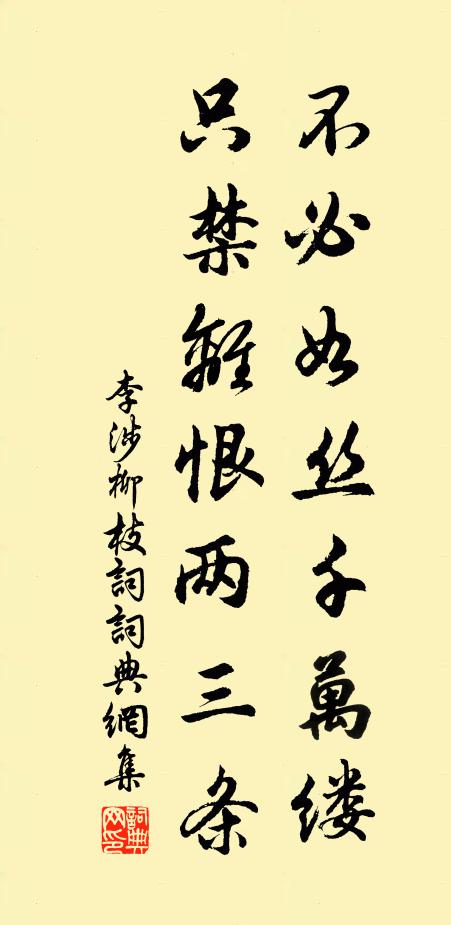 不必如丝千萬缕
只禁離恨两三条
李涉柳枝詞詞典網集
詞典网印